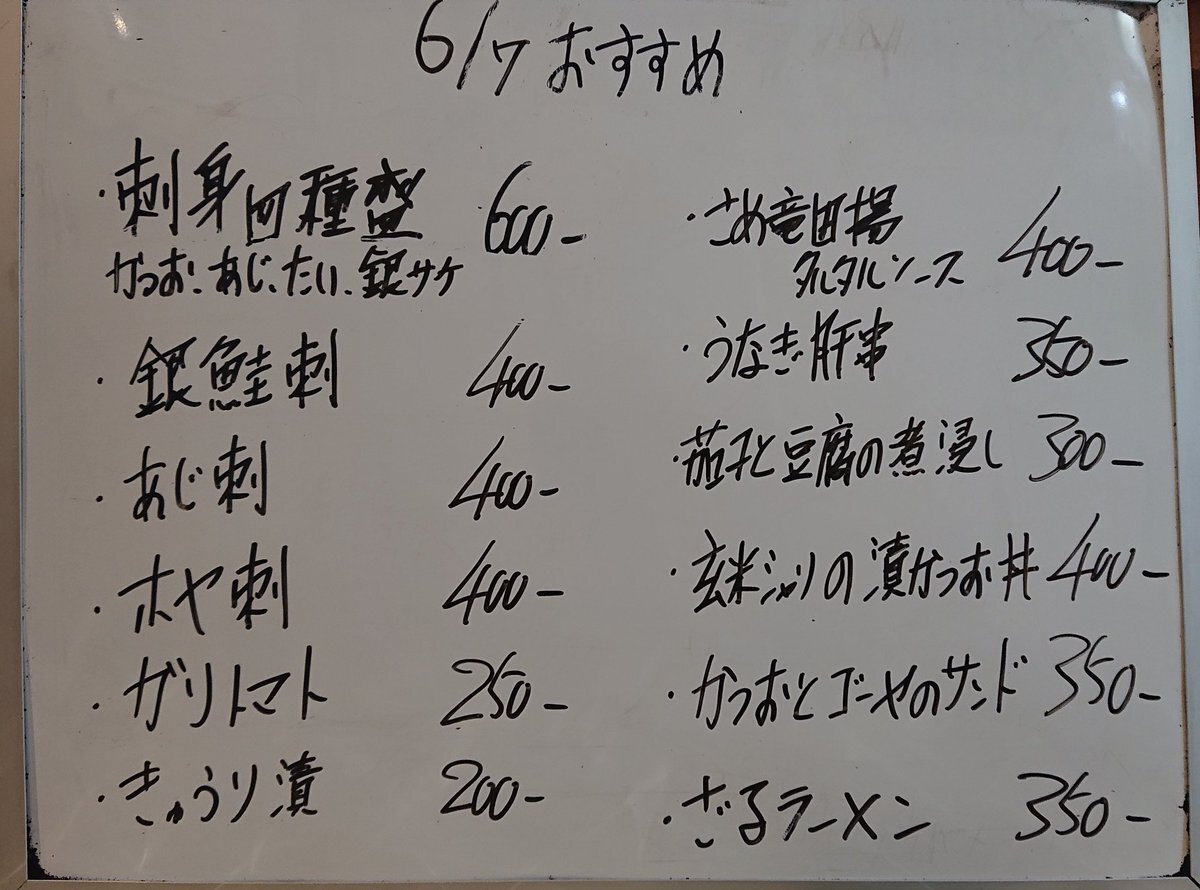 6/7 おすすめ
・刺身四種盛 600-
かつお、あじ、たい、銀サケ
・銀鮭刺 400-
・あじ刺 400-
・ホヤ刺 400-
・ガリトマト 250-
・きゅうり漬 200-
・さめ竜田揚 400-
タルタルソース
・うなぎ肝串 350-
・茄子と豆腐の煮浸し 300-
・玄米シャリの漬かつお丼 400-
・かつおとゴーヤのサンド 350-
・ざるラーメン 350-